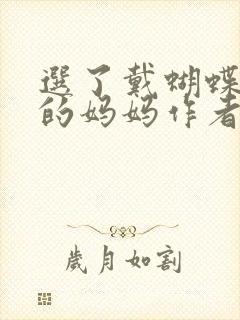 選了戴蝴蝶
的妈妈作者
歲月如割